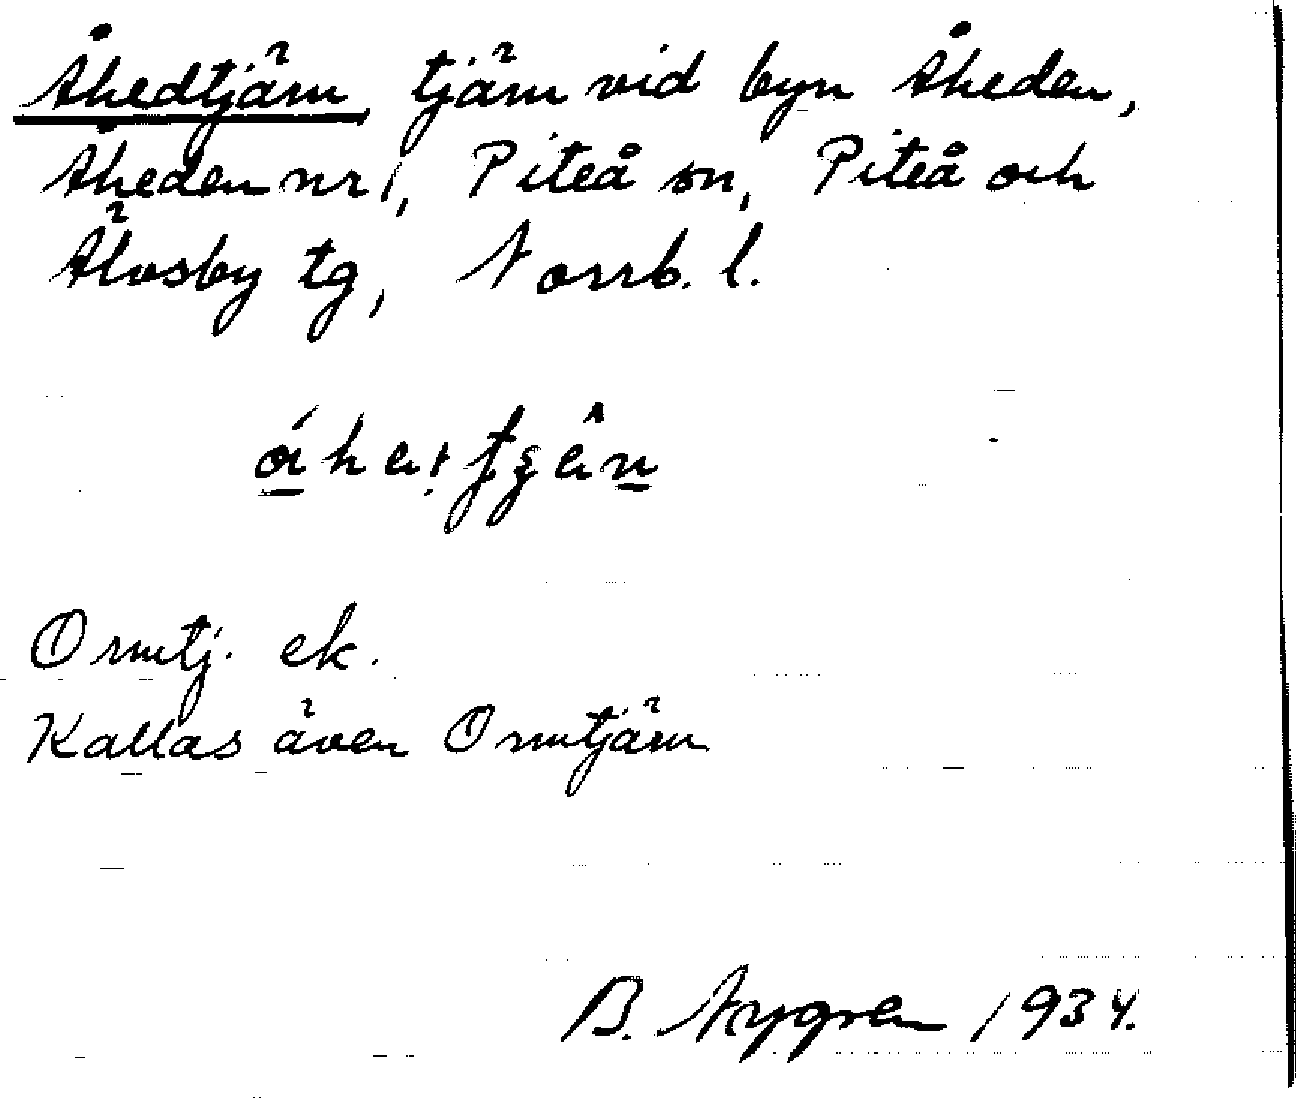 Åhedtjärn, tjärn vid byn Åheden,
Åheden nr 1, Piteå sn, Piteå och
Älvsby tg, Norrb. l.
Ormtj. ek.
Kallas även Ormtjärn
B. Nygren 1934.